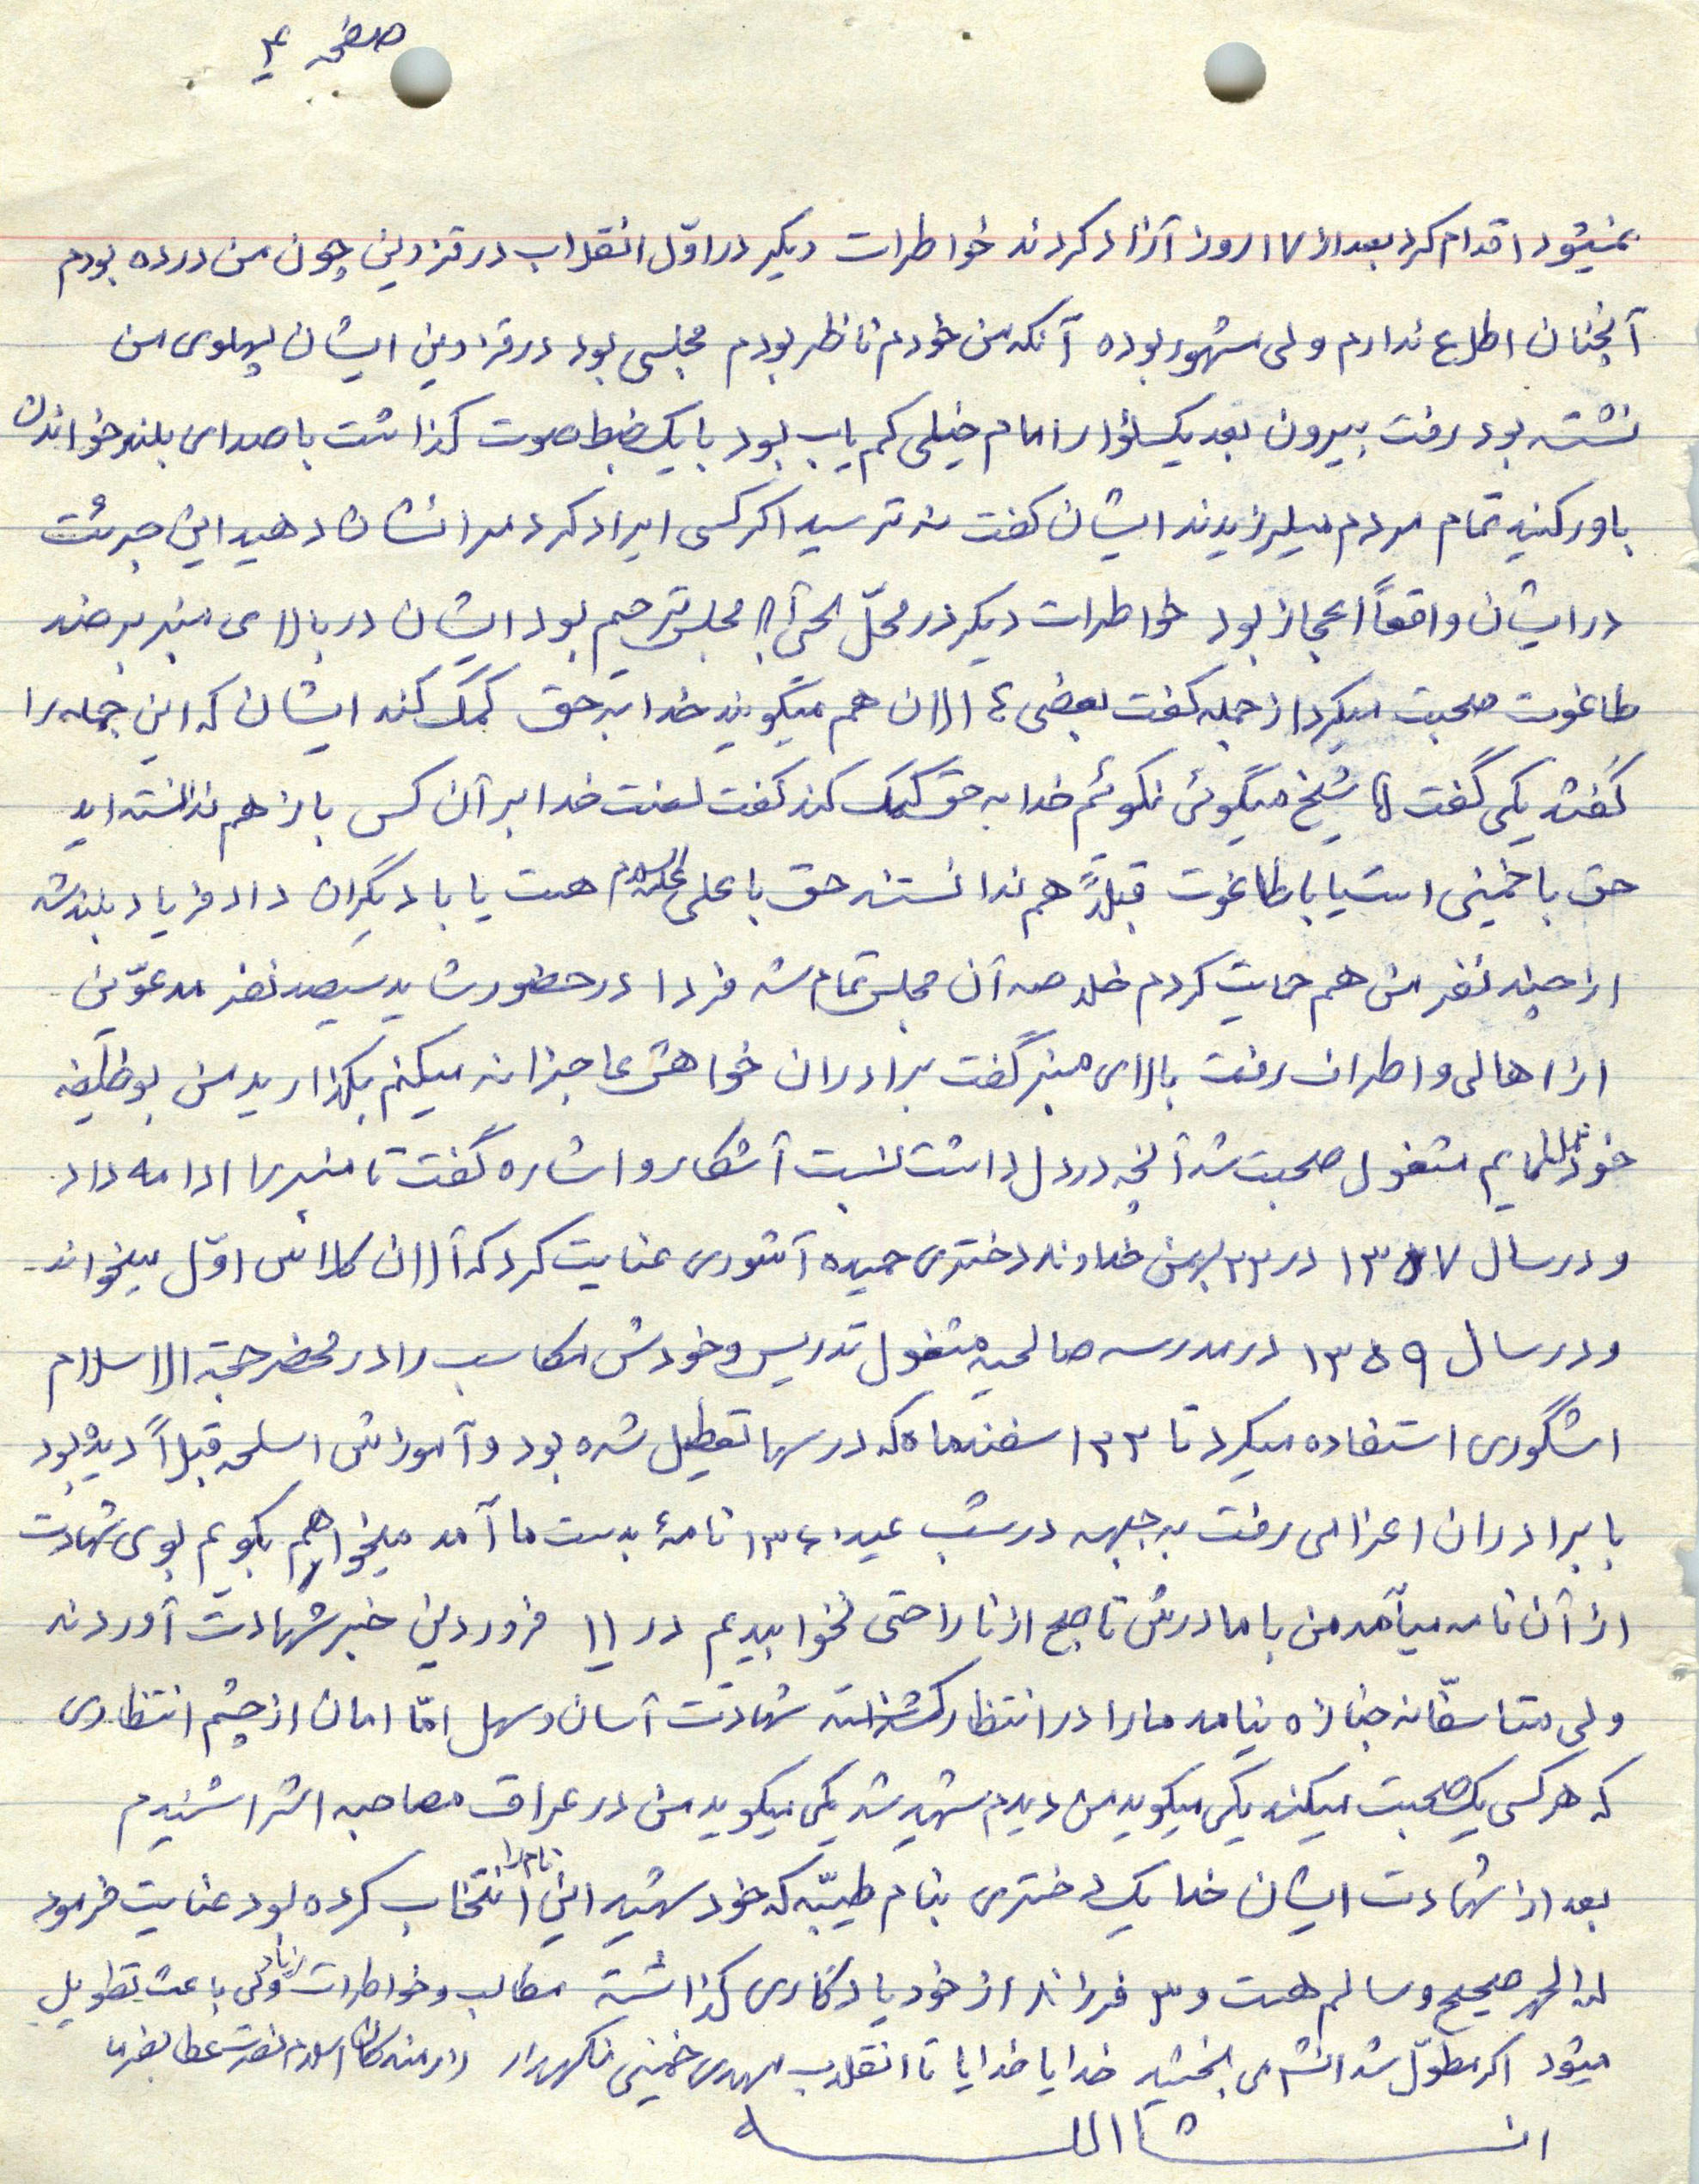 صفحه ۴
نمیشود اقدام کرد بعد از ۱۷ روز آزاد کردند خواطرات دیگر در اوّل انقلاب در قزوین چون من در ده بودم
آنچنان اطلاع ندارم ولی مشهور بوده آنکه من خودم ناظر بودم مجلسی بود در قزوین ایشان پهلوی من
نشسته بود رفت بیرون بعد یک نوار امام خیلی کم یاب بود با یک ضبط صوت گذاشت با صدای بلند خواندن
باور کنید تمام مردم میلرزیدند ایشان گفت نه ترسید اگر کسی ایراد کرد مرا نشان دهید این جرئت
در ایشان واقعاً اعجاز بود خواطرات دیگر در محلّ مجلس ترحیم بود ایشان در بالای منبر بر ضد
طاغوت صحبت میکرد از جمله گفت بعضی ء الان هم میگویند خدا به حق کمک کند ایشان که این جمله را
گفتند یکی گفت شیخ میگوئی نگوئم خدا به حق کمک کند گفت لعنت خدا بر آن کس باز هم ندانسته اید
حق با خمینی است یا با طاغوت قبلاً هم ندانستند حق با علی علیه السلام هست یا با دیگران داد فریاد بلند شد
از چند نفر من هم حمایت کردم خلاصه آن مجلس تمام شد فردا در حضور شاید سیصد نفر مدعوّین
از اهالی و اطراف رفت بالای منبر گفت برادران خواهش عاجزانه میکنم بگذارید من بوظیفه
خود عمل نمایم مشغول صحبت شد آنچه در دل داشت نسبت آشکار و اشاره گفت تا منبر را ادامه داد
و در سال ۱۳۵۷ در ۲۲ بهمن خداوند دختری حمیده آشوری عنایت کرد که آلان کلاس اوّل میخواند-
و در سال ۱۳۵۹ در مدرسه صالحیه مشغول تدریس و خودش مکاسب را در محضر حجة الاسلام
اشگوری استفاده میکرد تا ۲۳ اسفندماه که درسها تعطیل شده بود و آموزش اسلحه قبلاً دیده بود
با برادران اعزامی رفت به جبهه در شب عید ۱۳۶۰ نامهٔ بدست ما آمد میخواهم بگویم بوی شهادت
از آن نامه میآمد من با مادرش تا صبح از ناراحتی نخوابیدیم در ۱۱ فروردین خبر شهادت آوردند
ولی متاسفّانه جنازه نیامد ما را در انتظار گذاشته شهادت آسان و سهل امّا امان از چشم انتظاری
که هر کسی یک صحبت میکند یکی میگوید من دیدم شهید شد یکی میگوید من در عراق مصاحبه اش را شنیدم
بعد از شهادت ایشان خدا یک دختری بنام طیّبه که خود شهید این نام را انتخاب کرده بود عنایت فرمود
لله الحمد صحیح و سالم هست و ۳ فرزند از خود یادگاری گذاشته مطالب و خواطرات زیاد ولی باعث تطویل
میشود اگر مطوّل شد انشاء می بخشید خدایا خدایا تا انقلاب مهدی خمینی نگهدار رزمندگان اسلام نصرت عطا بفرما
انشاالله